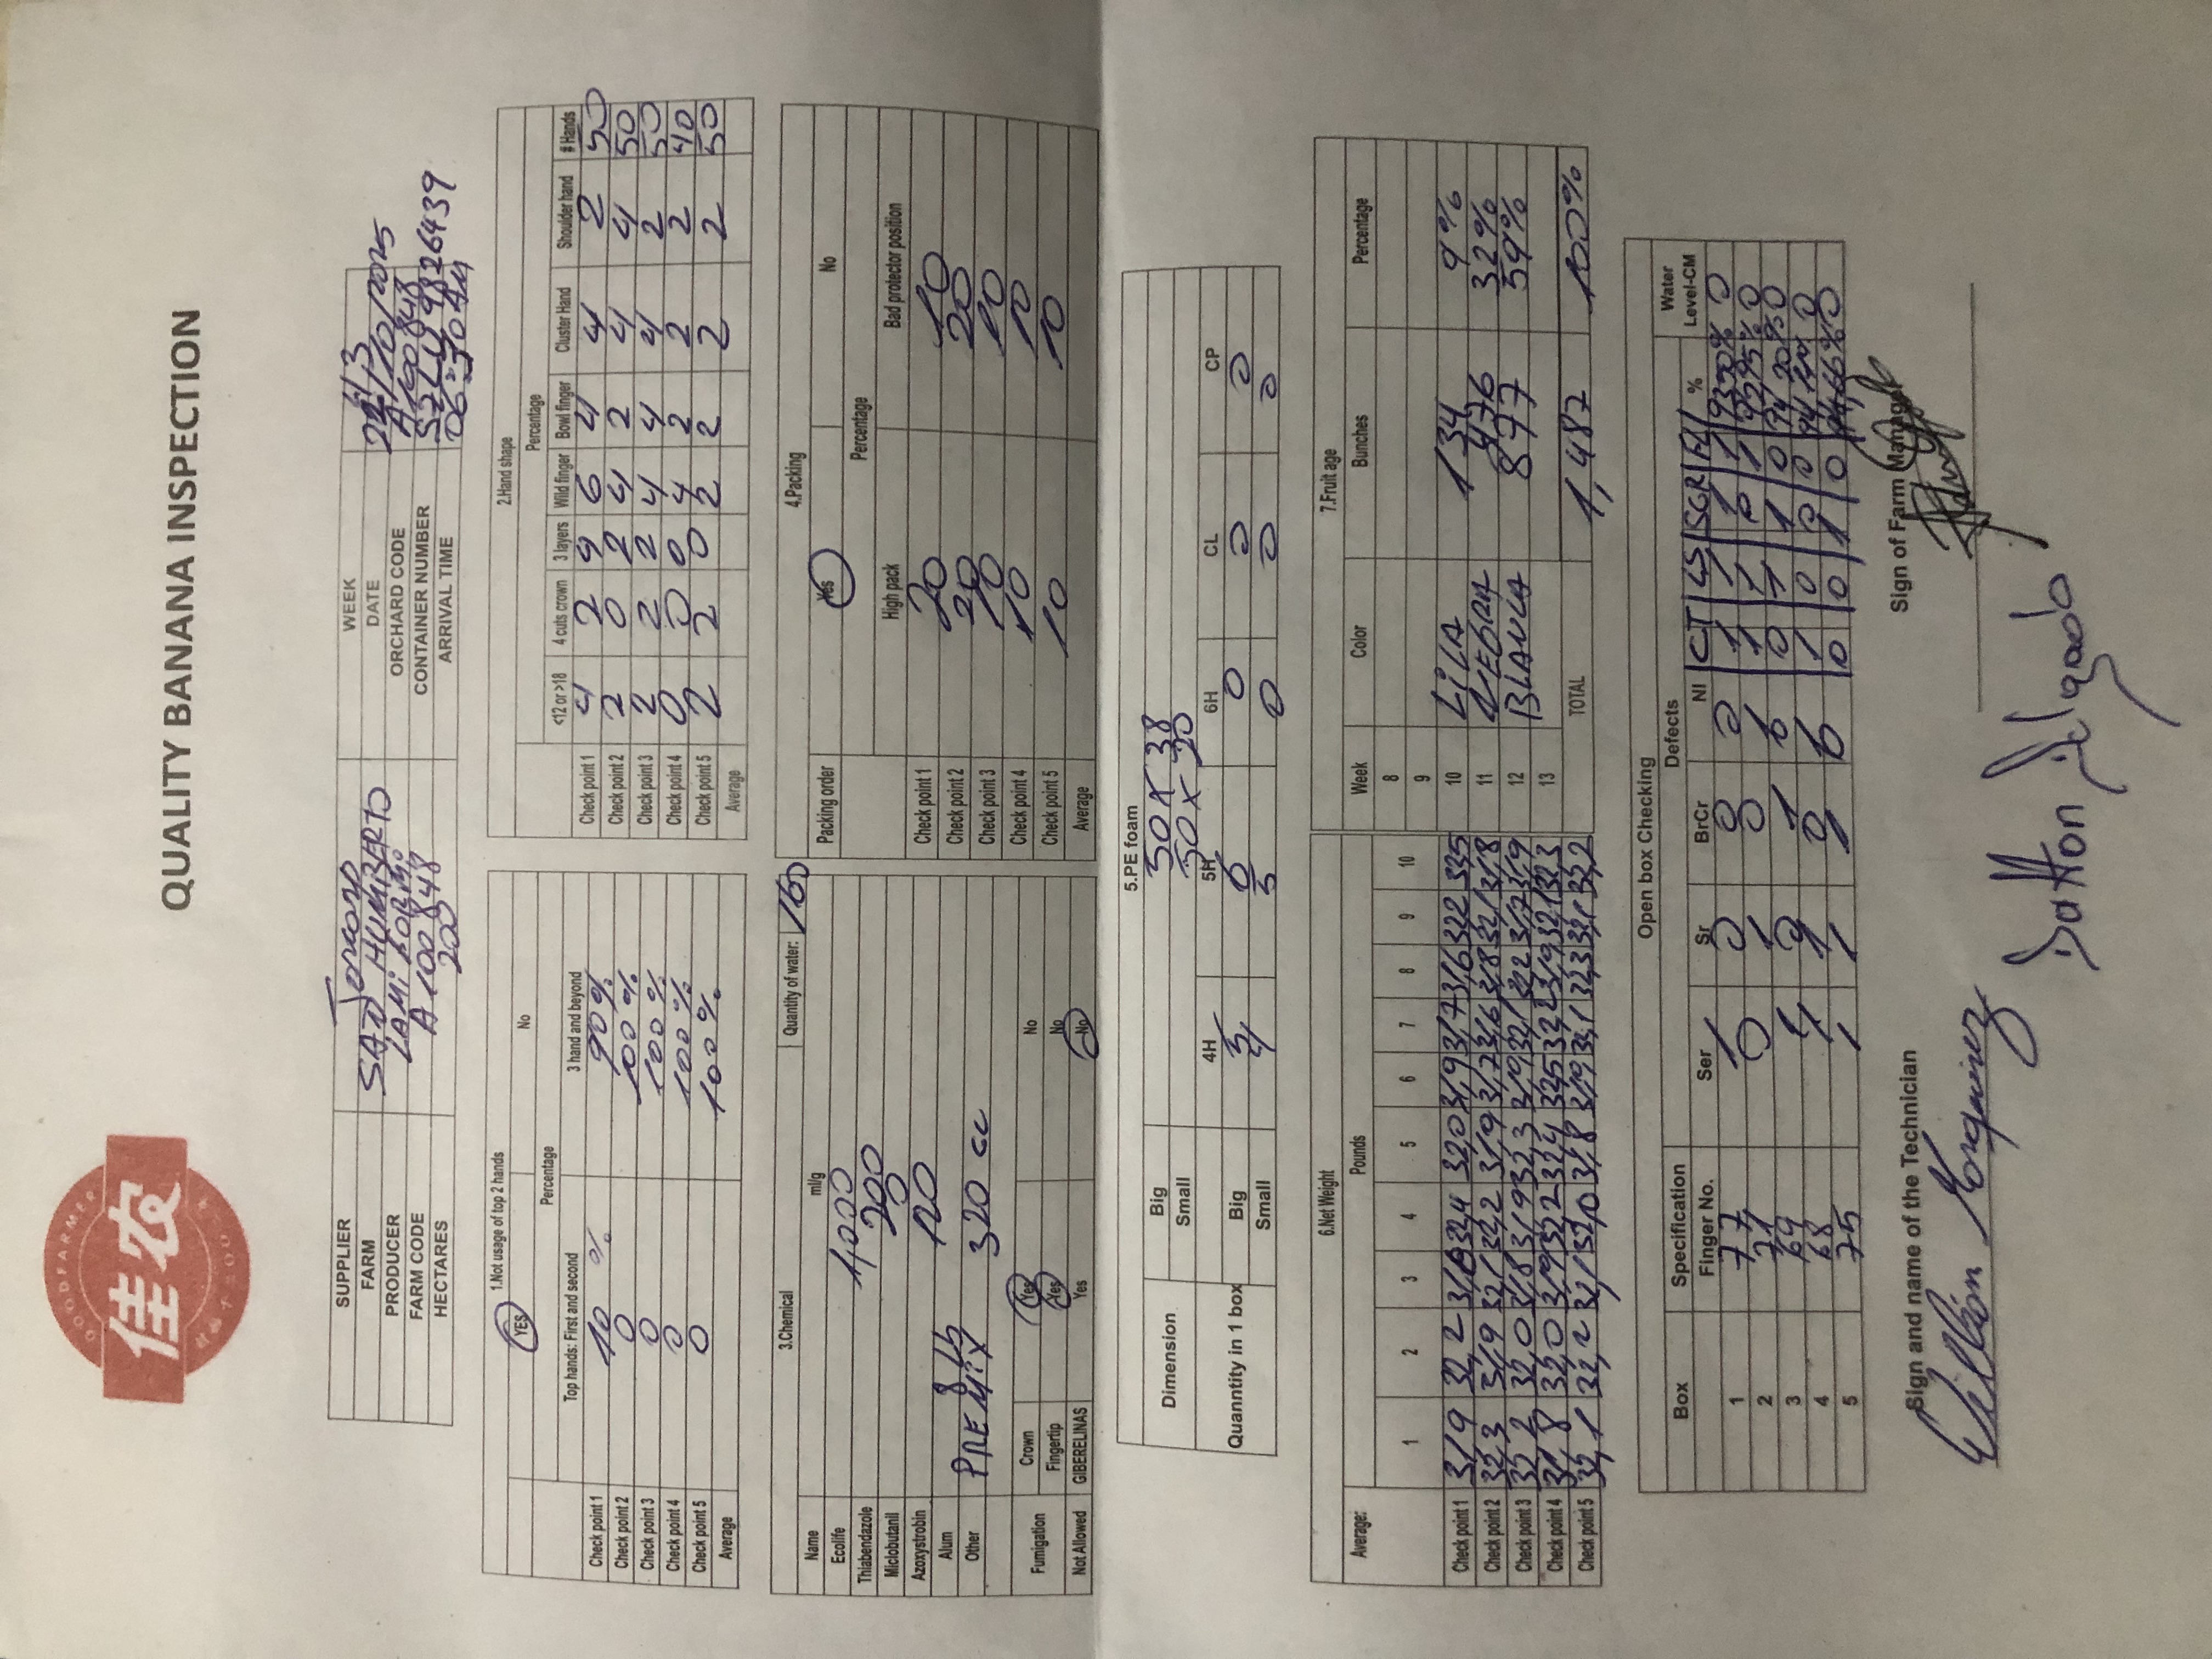 GOODFARMER
佳农
QUALITY BANANA INSPECTION
SUPPLIER Jorcorp WEEK 43
FARM SAN HUMBERTO DATE 22/10/2025
PRODUCER ORCHARD CODE A100848
FARM CODE A100848 CONTAINER NUMBER SZLU 9826439
HECTARES 200 ARRIVAL TIME 06:30 AM
1.Not usage of top 2 hands
YES No
Percentage
Top hands: First and second 3 hand and beyond
Check point 1 10 % 90%
Check point 2 0 100%
Check point 3 0 100%
Check point 4 0 100%
Check point 5 0 100%
Average
2.Hand shape
Percentage
<12 or >18 4 cuts crown 3 layers Wild finger Bowl finger Cluster Hand Shoulder hand # Hands
Check point 1 4 2 4 6 4 4 2 50
Check point 2 2 0 2 4 2 4 4 50
Check point 3 2 2 2 4 4 4 2 50
Check point 4 0 0 0 4 2 2 2 40
Check point 5 2 2 0 2 2 2 2 50
Average
3.Chemical Quantity of water: 160
Name ml/g
Ecolife 1,000
Thiabendazole 200
Miclobutanil 0
Azoxystrobin 120
Alum 8 Lb
Other PREMIX 320 cc
Fumigation Crown Yes No
Fingertip Yes No
Not Allowed GIBERELINAS Yes No
4.Packing
Packing order Yes No
Percentage
High pack Bad protector position
Check point 1 20 10
Check point 2 20 20
Check point 3 10 10
Check point 4 10 10
Check point 5 10 10
Average
5.PE foam
Dimension Big 50 x 38
Small 50 x 20
4H 5H 6H CL CP
Quanntity in 1 box Big 5 6 0 0 0
Small 4 5 0 0 0
6.Net Weight
Average: Pounds
1 2 3 4 5 6 7 8 9 10
Check point 1 31,9 32,2 31,8 32,4 32,0 31,9 31,7 31,6 32,2 32,5
Check point 2 32,3 31,9 32,1 32,2 31,9 31,7 31,6 31,8 32,1 31,8
Check point 3 32,2 32,0 31,8 31,9 32,3 31,9 32,1 32,2 31,7 31,9
Check point 4 31,8 32,0 31,9 32,2 32,4 32,5 32,2 31,9 32,1 32,3
Check point 5 32,1 32,2 32,1 32,0 31,8 31,9 32,1 32,3 32,1 32,2
7.Fruit age
Week Color Bunches Percentage
8
9
10 LILA 134 9%
11 NEGRA 476 32%
12 BLANCA 877 59%
13
TOTAL 1,487 100%
Open box Checking
Box Specification Defects Water
Finger No. Ser Sr BrCr NI CT LS SCR FL % Level-CM
1 77 1 0 0 0 1 1 1 1 93,50% 0
2 71 0 1 0 1 1 0 1 0
3 69 1 0 1 0 1 1 0 94,20% 0
4 68 1 1 0 1 0 0 0 0
5 75 1 1 1 0 0 1 0 94,66% 0
Sign and name of the Technician Sign of Farm Manager
Datton Delgado